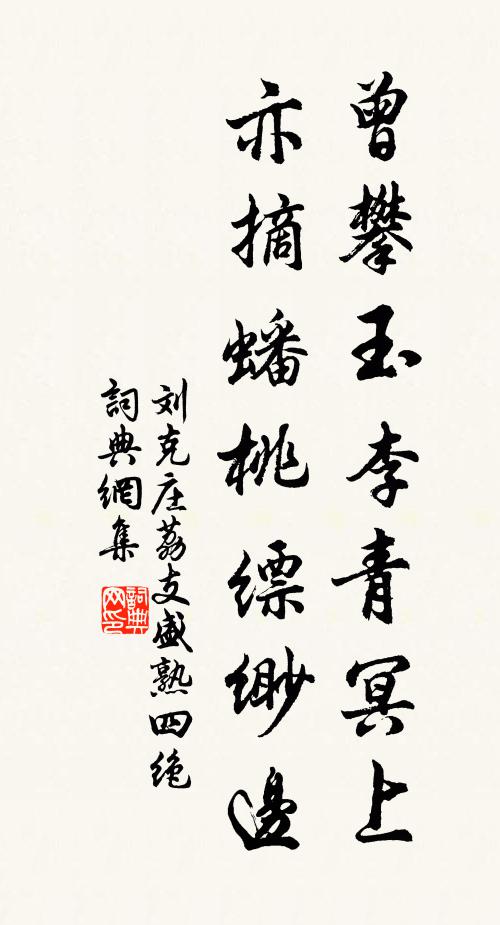 曾攀玉李青冥上
亦摘蟠桃缥缈邊
刘克庄荔支盛熟四绝
詞典網集
詞典
网印